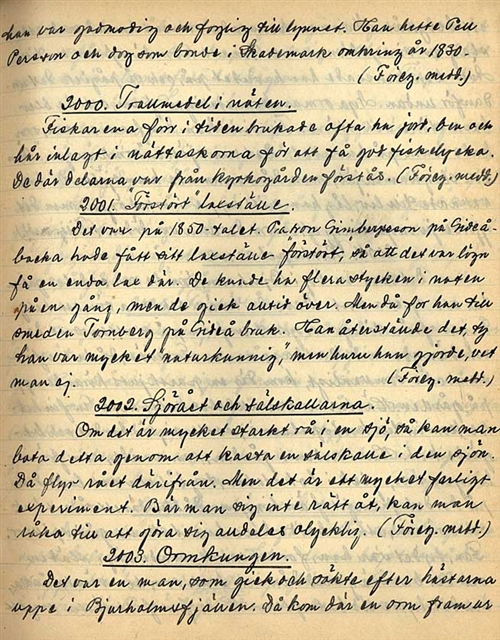 han var godmodig och foglig till lynnet. Han hette Pell
Persson och dog som bonde i Skademark omkring år 1830.
(Föreg. medd.)
2000. Trollmedel i näten.
Fiskarena förr i tiden brukade ofta ha jord, ben och
hår inlagt i nättaskorna för att få god fiskelycka.
De där delarna var från kyrkogården förstås. (Föreg. medd.)
2001. "Förstört" laxställe.
Det var på 1850-talet. Patron Gimbergsson på Gideå-
backa hade fått sitt laxställe "förstört", så att det var lögn
få en enda lax där. De kunde ha flera stycken i noten
på en gång, men de gick alltid över. Men då for han till
smeden Tornberg på Gideå bruk. Han återställde det, ty
han var mycket "naturkunnig," men huru han gjorde, vet
man ej. (Föreg. medd.)
2002. Sjörået och sälskallarna.
Om det är mycket starkt rå i en sjö, så kan man
bota detta genom att kasta en sälskalle i den sjön.
Då flyr rået därifrån. Men det är ett mycket farligt
experiment. Bär man sig inte rätt åt, kan man
råka till att göra sig alldeles olycklig. (Föreg. medd.)
2003. Ormkungen.
Det var en man, som gick och sökte efter hästarna
uppe i Bjurholmsfjällen. Då kom där en orm fram ur